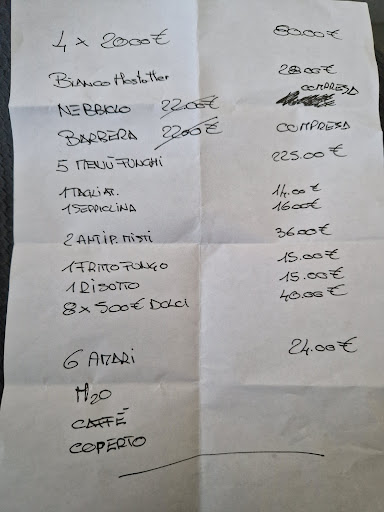 4 x 20.00€ 80.00€
Bianco Hostotter 28.00€
NEBBIOLO 22.00€ COMPRESA
BARBERA 22.00€ COMPRESA
5 MENÙ FUNGHI 225.00€
1 TAGLIAT. 14.00€
1 SEPPIOLINA 16.00€
2 ANTIP. MISTI 36.00€
1 FRITTO FUNGO 15.00€
1 RISOTTO 15.00€
8 x 5.00€ DOLCI 40.00€
6 AMARI 24.00€
H2O
CAFFÉ
COPERTO